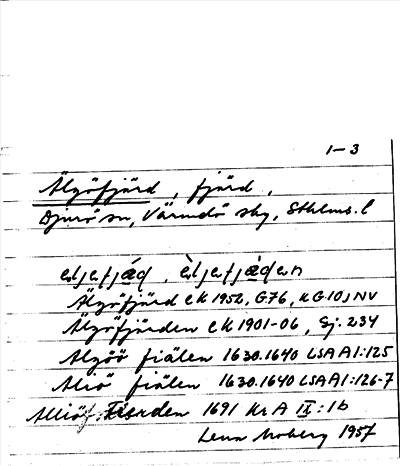 1-3
Älgöfjärd, fjärd,
Djurö sn, Värmdö sky, Sthlms. l
Älgöfjärd EK 1952, G76, KG 10J NV
Älgöfjärden EK 1901-06, Gj. 234
Algöö fiälen 1630.1640 LSA A1:125
Aliö fiälen 1630.1640 LSA A1:126-7
Alliöf Fiärden 1691 Kr A IX:1b
Lena Moberg 1957